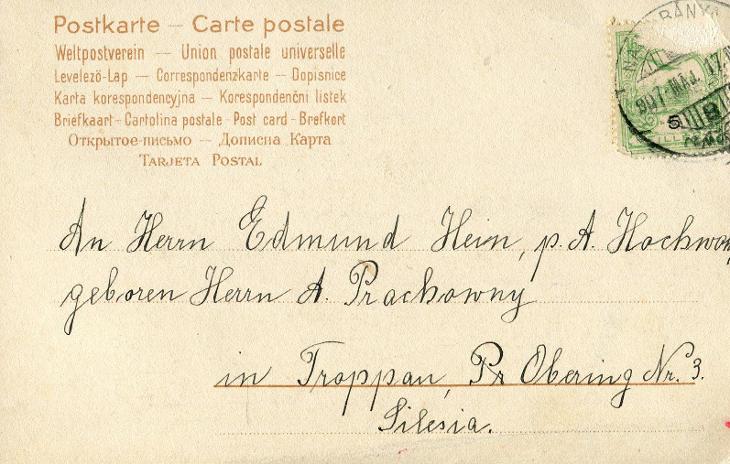 Postkarte – Carte postale
Weltpostverein – Union postale universelle
Levelező-Lap – Correspondenzkarte – Dopisnice
Karta korespondencyjna – Korespondenční listek
Briefkaart – Cartolina postale – Post card – Brefkort
Открытое-письмо – Дописна Карта
TARJETA POSTAL
907 MÁJ. 17
5
An Herrn Edmund Hein, p. A. Hochwol
geboren Herrn A. Prachowny
in Troppau, Pr Obering Nr. 3.
Silesia.